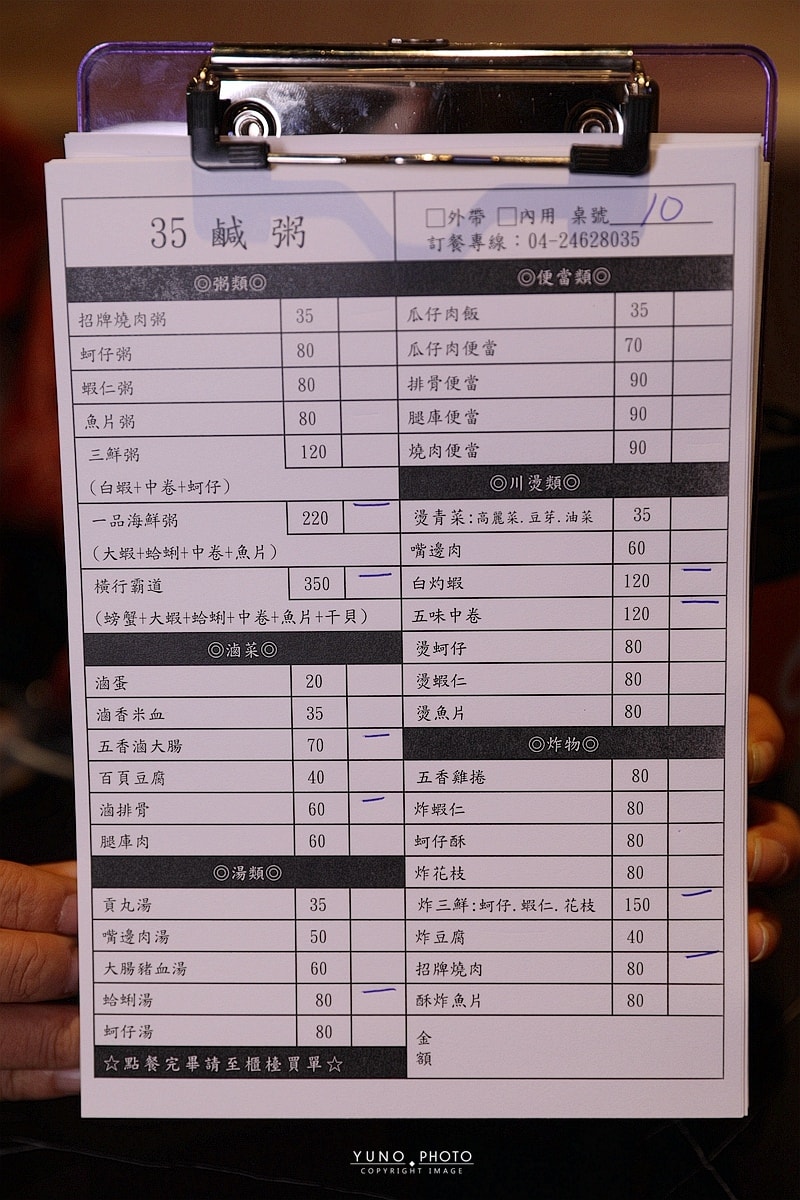 35 鹹粥
□外帶 □內用 桌號 10
訂餐專線：04-24628035
◎粥類◎
招牌燒肉粥 35
蚵仔粥 80
蝦仁粥 80
魚片粥 80
三鮮粥 120
(白蝦+中卷+蚵仔)
一品海鮮粥 220
(大蝦+蛤蜊+中卷+魚片)
橫行霸道 350
(螃蟹+大蝦+蛤蜊+中卷+魚片+干貝)
◎滷菜◎
滷蛋 20
滷香米血 35
五香滷大腸 70
百頁豆腐 40
滷排骨 60
腿庫肉 60
◎湯類◎
貢丸湯 35
嘴邊肉湯 50
大腸豬血湯 60
蛤蜊湯 80
蚵仔湯 80
☆點餐完畢請至櫃檯買單☆
◎便當類◎
瓜仔肉飯 35
瓜仔肉便當 70
排骨便當 90
腿庫便當 90
燒肉便當 90
◎川燙類◎
燙青菜:高麗菜.豆芽.油菜 35
嘴邊肉 60
白灼蝦 120
五味中卷 120
燙蚵仔 80
燙蝦仁 80
燙魚片 80
◎炸物◎
五香雞捲 80
炸蝦仁 80
蚵仔酥 80
炸花枝 80
炸三鮮:蚵仔.蝦仁.花枝 150
炸豆腐 40
招牌燒肉 80
酥炸魚片 80
金
額
YUNO PHOTO
COPYRIGHT IMAGE